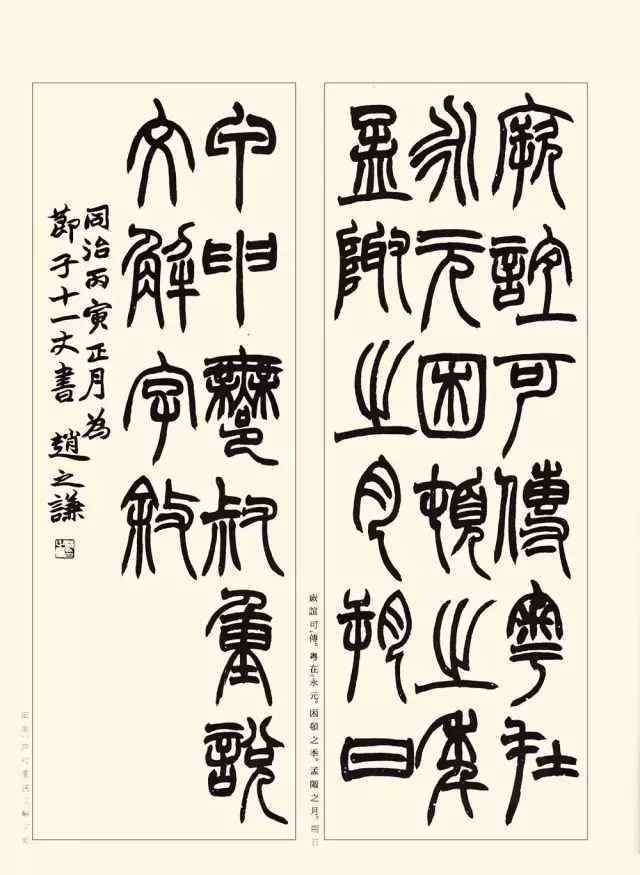 厥誼可傳粵在
永元困頓之秊
孟陬之月朔日
厥誼可傳。粵在永元。困頓之秊。孟陬之月。朔日
甲申鄦叔重說
文解字敘
同治丙寅正月為
莭子十一丈書 趙之謙